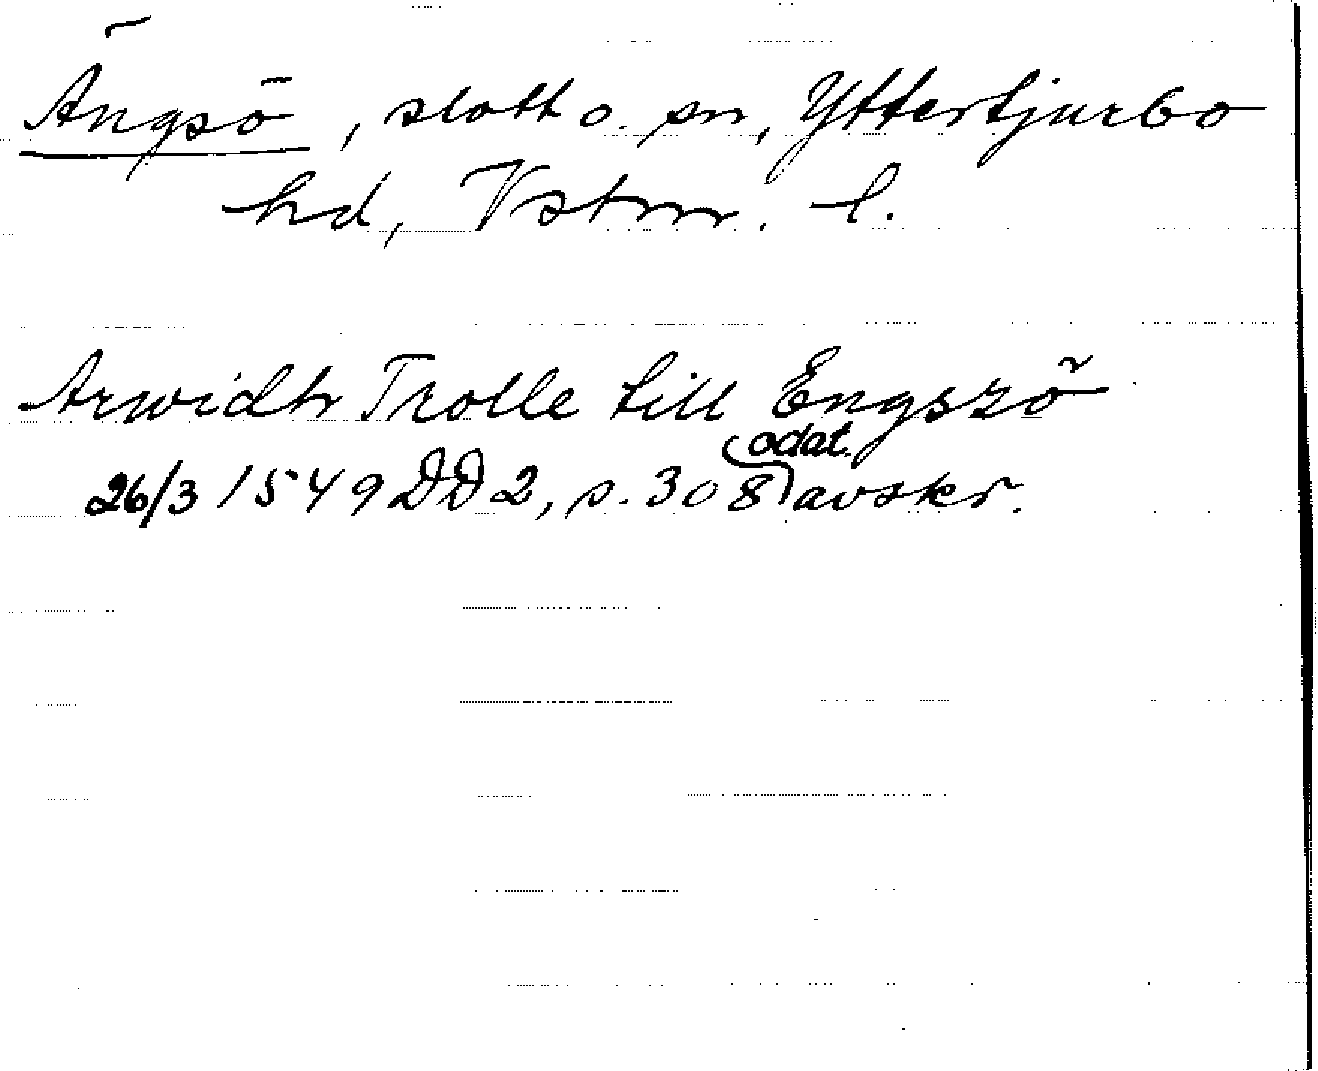 Ängsö, slott o. sn, Yttertjurbo
hd, Vstm. l.
Arwidh Trolle till Engszö
odat.
26/3 1549 DD 2, s. 308 avskr.